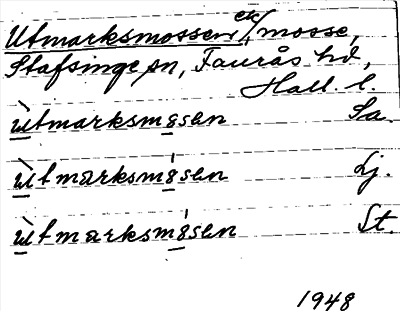 Utmarksmossen, ek, mosse,
Stafsinge sn, Faurås hd,
Hall. l.
ùtmarksmo̱sen Sa.
ùtmarksmó̱sen Lj.
ùtmarksmó̱sen St.
1948